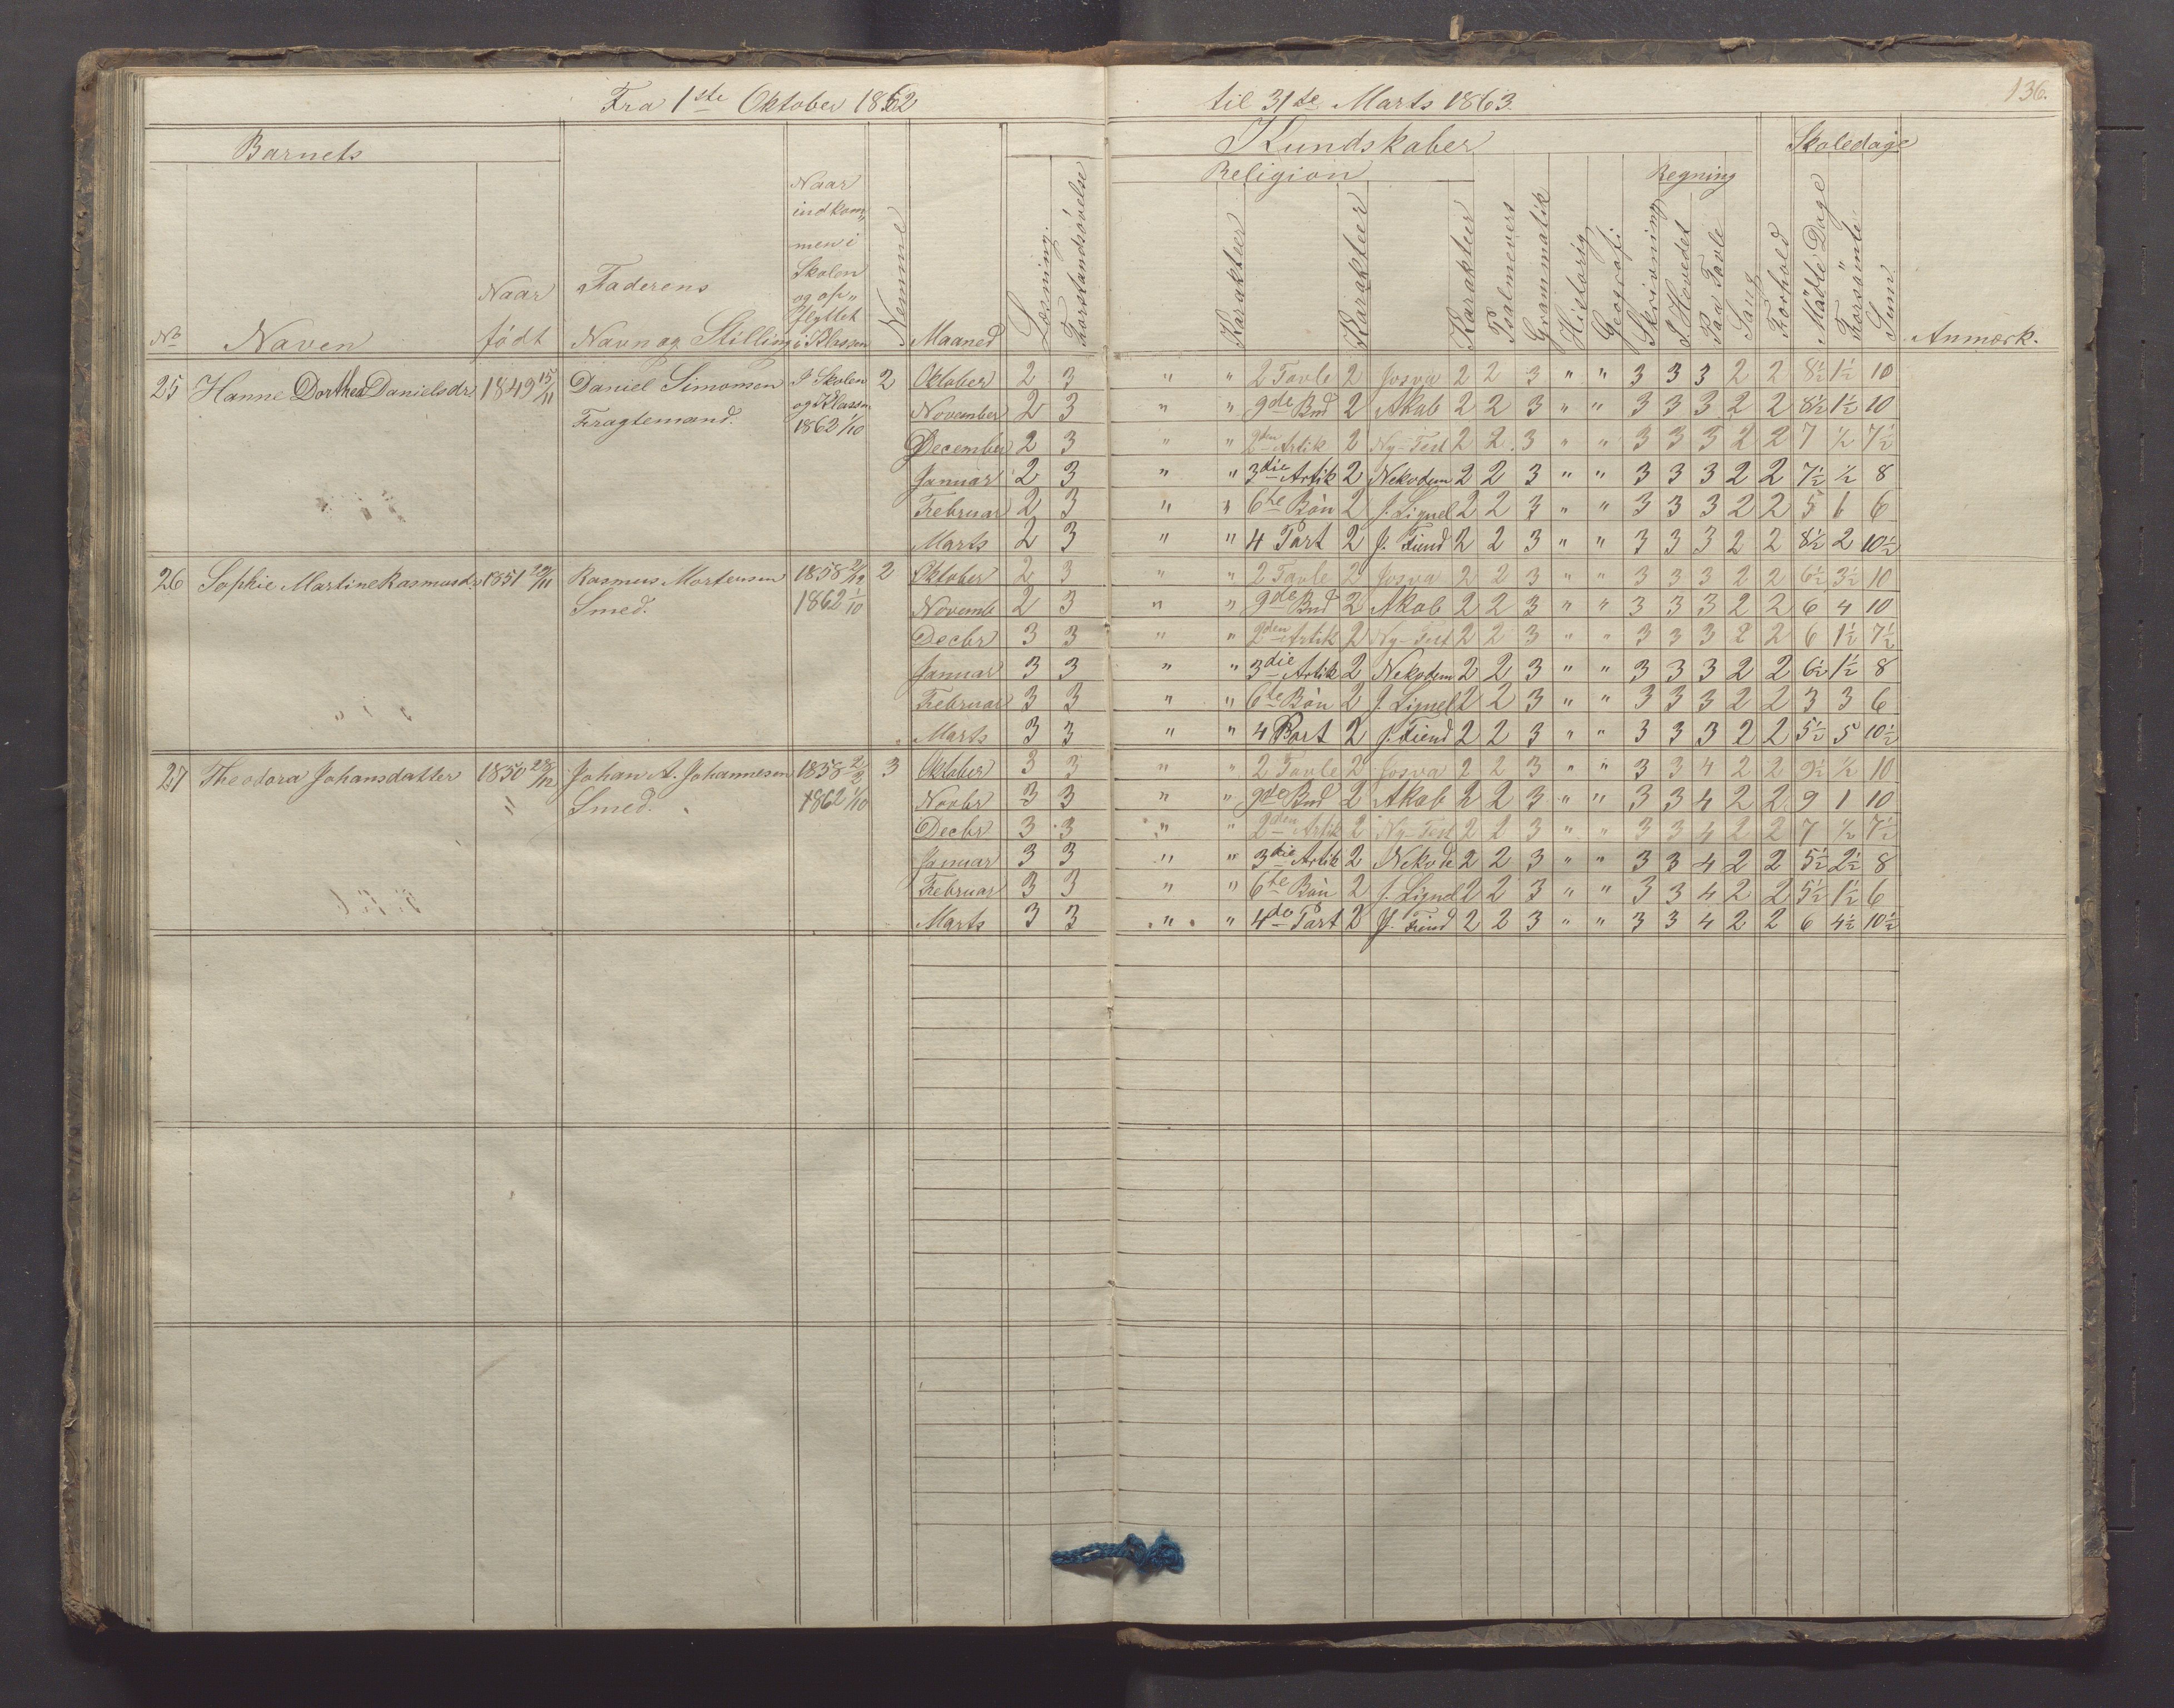 Fra 1ste Oktober 1862 til 31te Marts 1863.
136.
Barnets
Kundskaber
Skoledage
Religion
Regning
No
Naven
Naar født
Faderens Navn og Stilling
Naar indkommen i Skolen og opflyttet i Klassen
Nemme
Maaned
Læsning.
Forstandsøvelse
Karakteer
Karakteer
Karakteer
Psalmevers
Grammatik
Historig
Geografi
Skrivning
I Hovedet
Paa Tavle
Sang
Forhold
Mødte Dage
Forsømte "
Sum
Anmærk.
25 Hanne Dorthea Danielsdr 1849 15/11 Daniel Simonsen I Skolen 2 Oktober 2 3 " " 2 Tavle 2 Josva 2 2 3 " " 3 3 3 2 2 8½ 1½ 10
Fragtemand. og Klassen November 2 3 " " 9de Bud 2 Akab 2 2 3 " " 3 3 3 2 2 8½ 1½ 10
1862 1/10 December 2 3 " " 2den Artik 2 Ny-Test 2 2 3 " " 3 3 3 2 2 7 ½ 7½
Januar 2 3 " " 3die Artik 2 Nekodem 2 2 3 " " 3 3 3 2 2 7½ ½ 8
Februar 2 3 " " 6te Bøn 2 J. Lignel 2 2 3 " " 3 3 3 2 2 5 1 6
Marts 2 3 " " 4 Part 2 J. Fiend 2 2 3 " " 3 3 3 2 2 8½ 2 10½
26 Sophie Martine Rasmusdr. 1851 /11 Rasmus Mortensen 1858 /12 2 Oktober 2 3 " " 2 Tavle 2 Josva 2 2 3 " " 3 3 3 2 2 6½ 3½ 10
Smed. 1862 1/10 Novembe 2 3 " " 9de Bud 2 Akab 2 2 3 " " 3 3 3 2 2 6 4 10
Decbr 3 3 " " 2den Artik 2 Ny-Test 2 2 3 " " 3 3 3 2 2 6 1½ 7½
Januar 3 3 " " 3die Artik 2 Nekodem 2 2 3 " " 3 3 3 2 2 6½ 1½ 8
Februar 3 3 " " 6te Bøn 2 J. Lignel 2 2 3 " " 3 3 3 2 2 3 3 6
Marts 3 3 " " 4 Part 2 J. Fiend 2 2 3 " " 3 3 3 2 2 5½ 5 10½
27 Theodora Johansdatter 1850 28/12 Johan A. Johannesen 1858 3 Oktober 3 3 " " 2 Tavle 2 Josva 2 2 3 " " 3 3 4 2 2 9½ ½ 10
" Smed. 1862 1/10 Novbr 3 3 " " 9de Bud 2 Akab 2 2 3 " " 3 3 4 2 2 9 1 10
Decbr 3 3 " " 2den Artik 2 Ny-Test 2 2 3 " " 3 3 4 2 2 7 ½ 7½
Januar 3 3 " " 3die Artik 2 Nekode 2 2 3 " " 3 3 4 2 2 5½ 2½ 8
Februar 3 3 " " 6te Bøn 2 J. Lignel 2 2 3 " " 3 3 4 2 2 5½ 1½ 6
Marts 3 3 " " 4de Part 2 J. Fiend 2 2 3 " " 3 3 4 2 2 6 4½ 10½